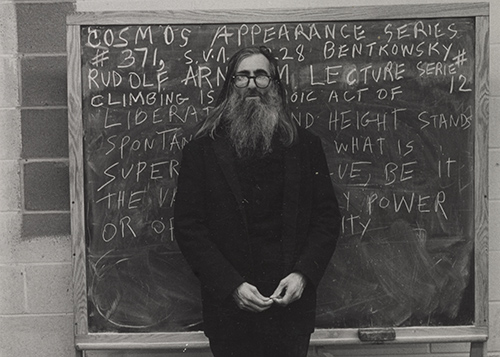 COSMOS APPEARANCE SERIES
# 371, S.V.A. 28 BENTKOWSKY
RUDOLF ARN M LECTURE SERIE #
CLIMBING IS OIC ACT OF 12
LIBERAT ND HEIGHT STANDS
SPONTAN WHAT IS
SUPER VE, BE IT
THE VA Y POWER
OR OF ITY